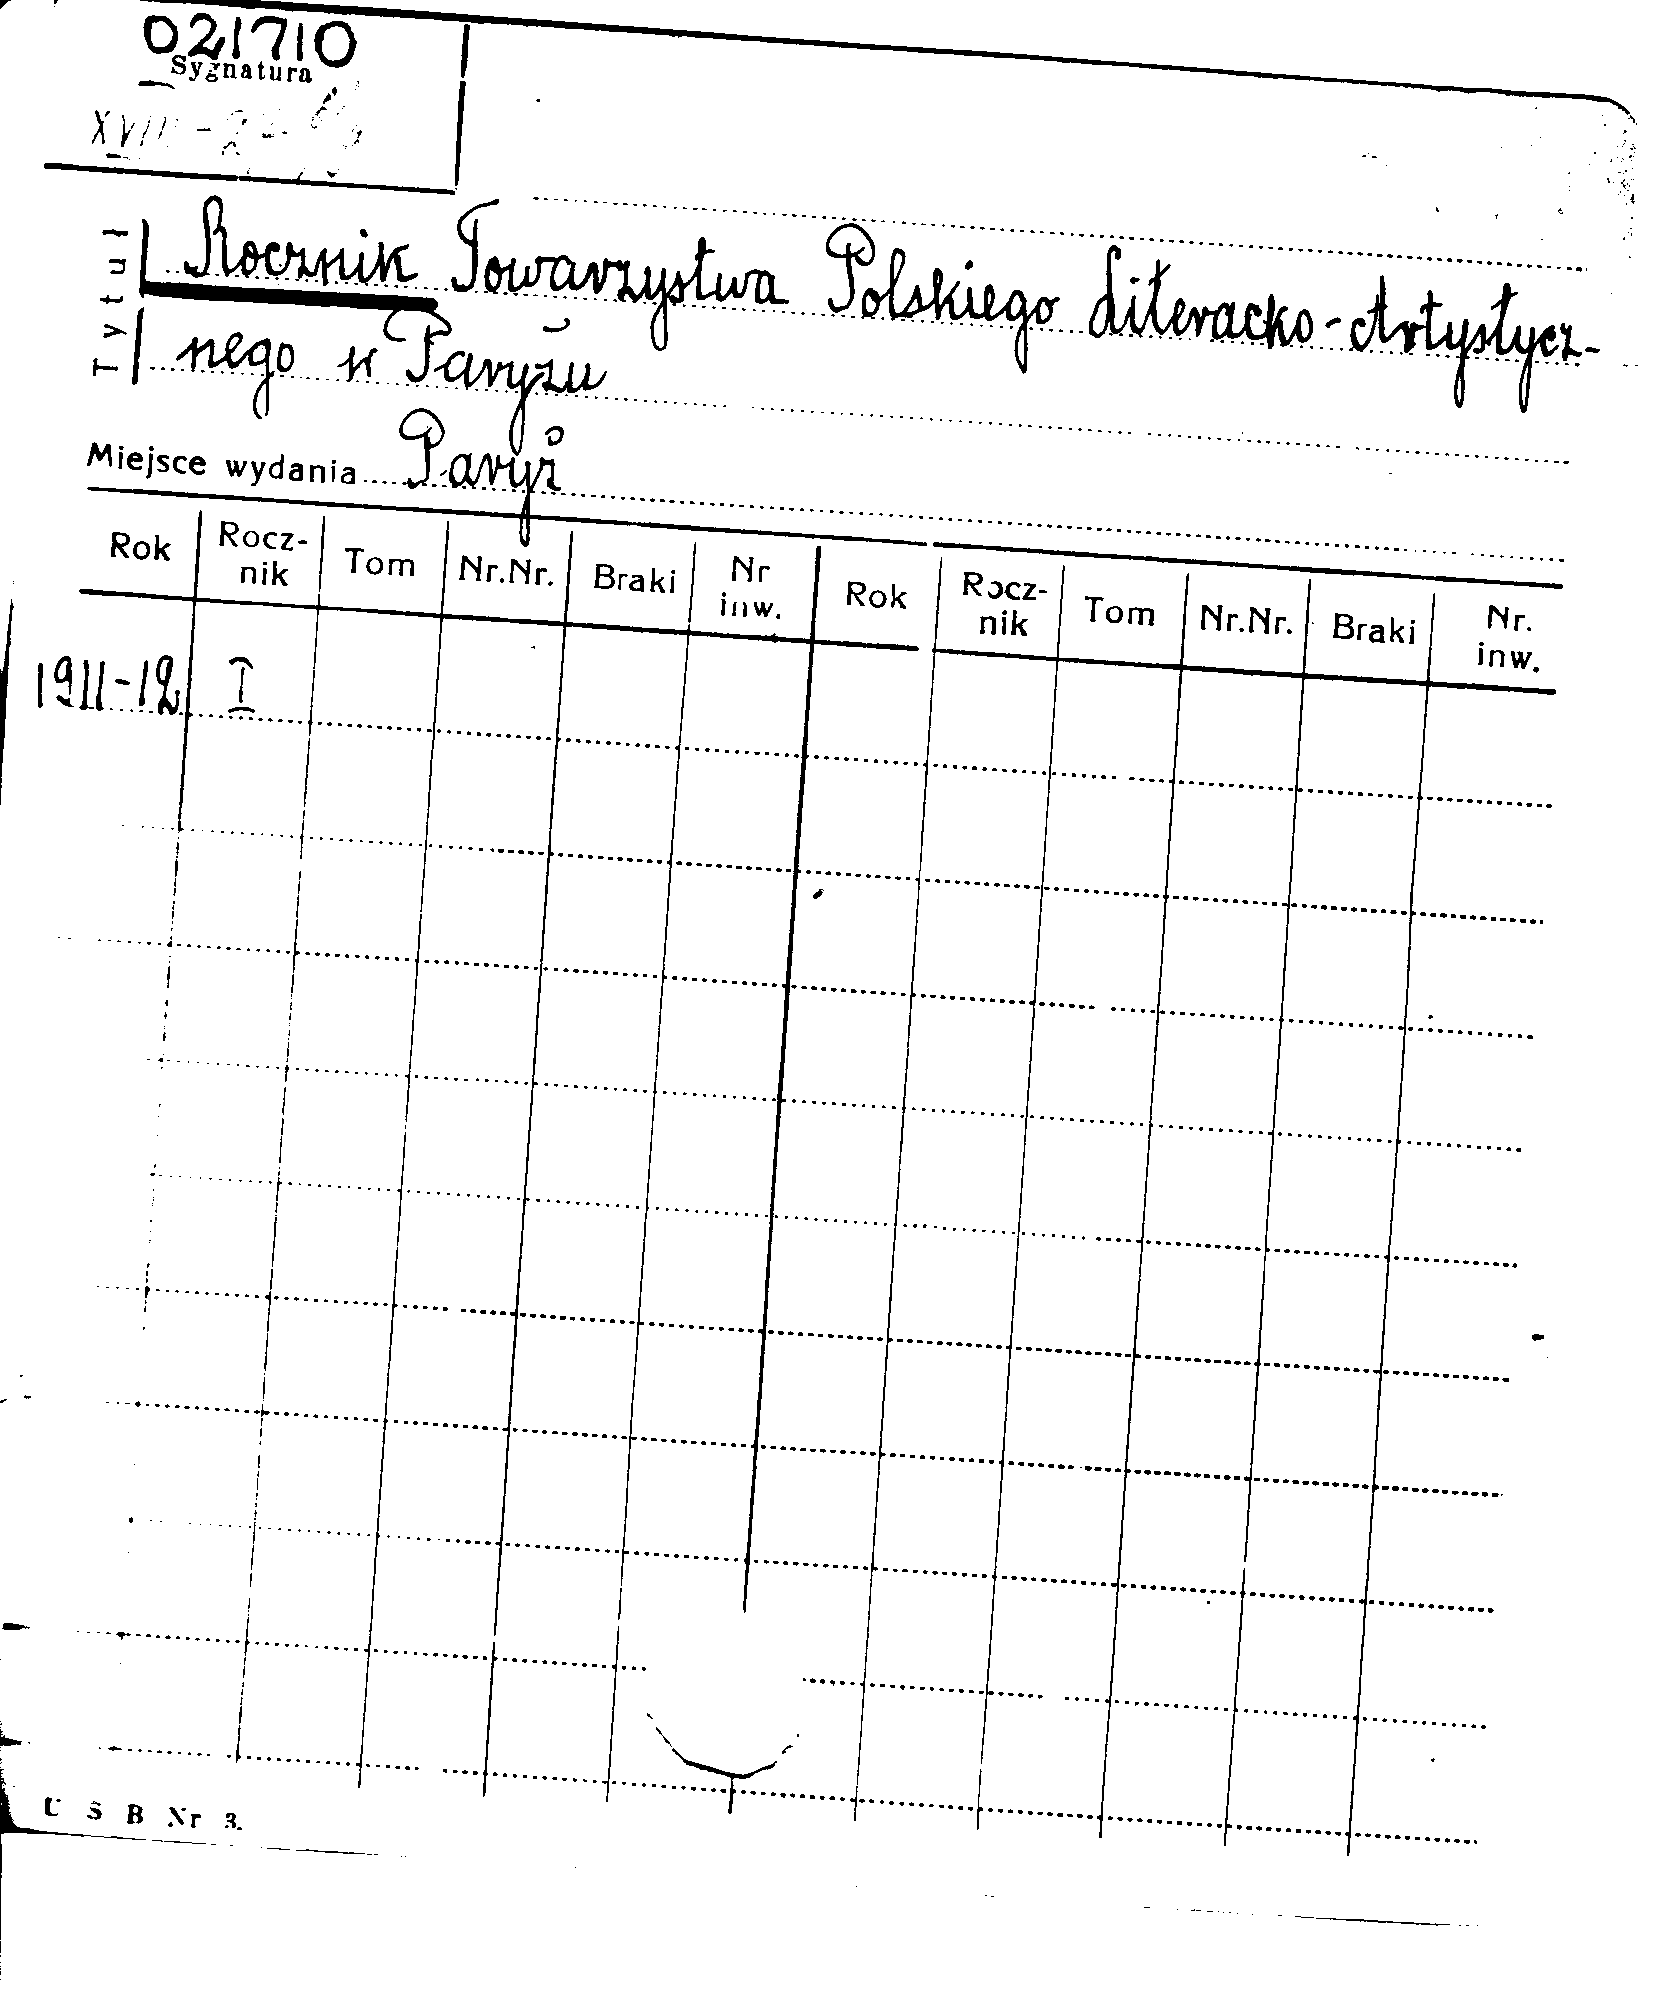 021710
Sygnatura
XVIII -
Tytuł
Rocznik Towarzystwa Polskiego Literacko-Artystycz-
nego w Paryżu
Miejsce wydania Paryż
Rok Rocz-nik Tom Nr.Nr. Braki Nr inw. Rok Rocz-nik Tom Nr.Nr. Braki Nr. inw.
1911-12 I
U S B Nr 3.